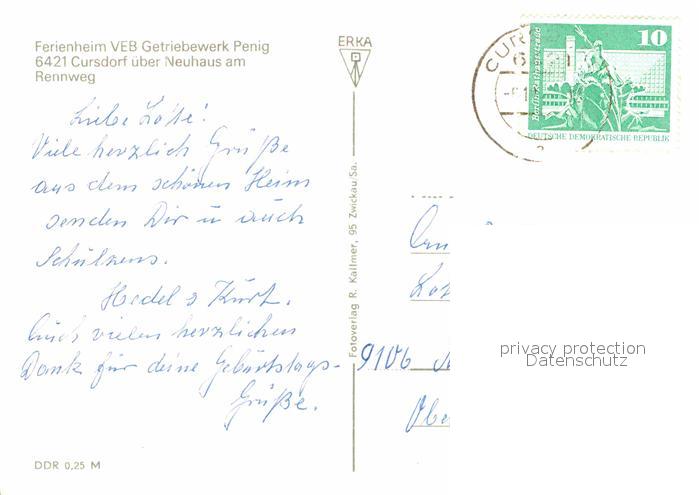 Ferienheim VEB Getriebewerk Penig
6421 Cursdorf über Neuhaus am
Rennweg
ERKA
10
Berlin-Rathausstraße
DEUTSCHE DEMOKRATISCHE REPUBLIK
CUR
Liebe Lotte!
Viele herzlich Grüße
aus dem schönen Heim
senden Dir u auch
Schülzens.
Hedel & Kurt.
Auch vielen herzlichen
Dank für deine Geburtstags-
Grüße.
Fotoverlag R. Kallmer, 95 Zwickau/Sa.
9106
privacy protection
Datenschutz
DDR 0,25 M